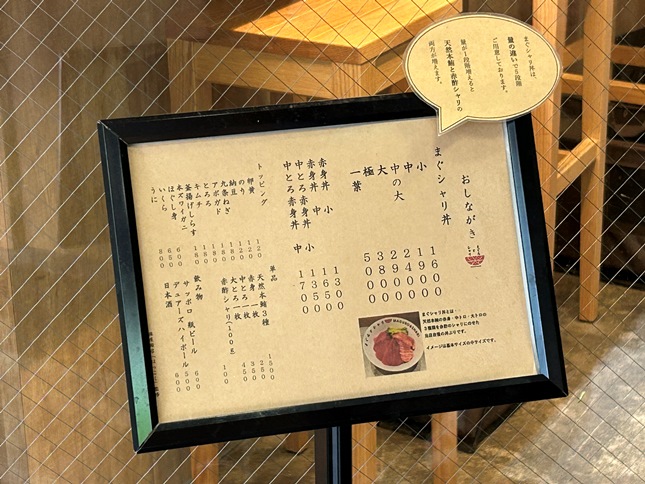 まぐシャリ丼は、
量の違いで5段階
ご用意しております。
量が1段階増えると
天然本鮪と赤酢シャリの
両方が増えます。
おしながき
まぐシャリ丼
小 1600
中 1900
中の大 2400
大 2900
極 3800
一葉 5000
まぐシャリ丼とは…
天然本鮪の赤身・中トロ・大トロの
3種類を自慢のシャリにのせた
当店自慢の丼ぶりです。
イメージは基本サイズの中サイズです。
赤身丼 小 1300
赤身丼 中 1650
中とろ赤身丼 小 1350
中とろ赤身丼 中 1700
トッピング
卵黄 120
のり 120
納豆
九条ねぎ 180
アボガド 180
とろろ 180
キムチ 180
釜揚げしらす
本ズワイガニ
ほぐし身 600
いくら 650
うに 800
単品
天然本鮪3種 1500
赤身一枚 250
中とろ一枚 350
大とろ一枚 450
赤酢シャリ(100g) 100
飲み物
サッポロ 瓶ビール 600
デュアーズハイボール 500
日本酒 600